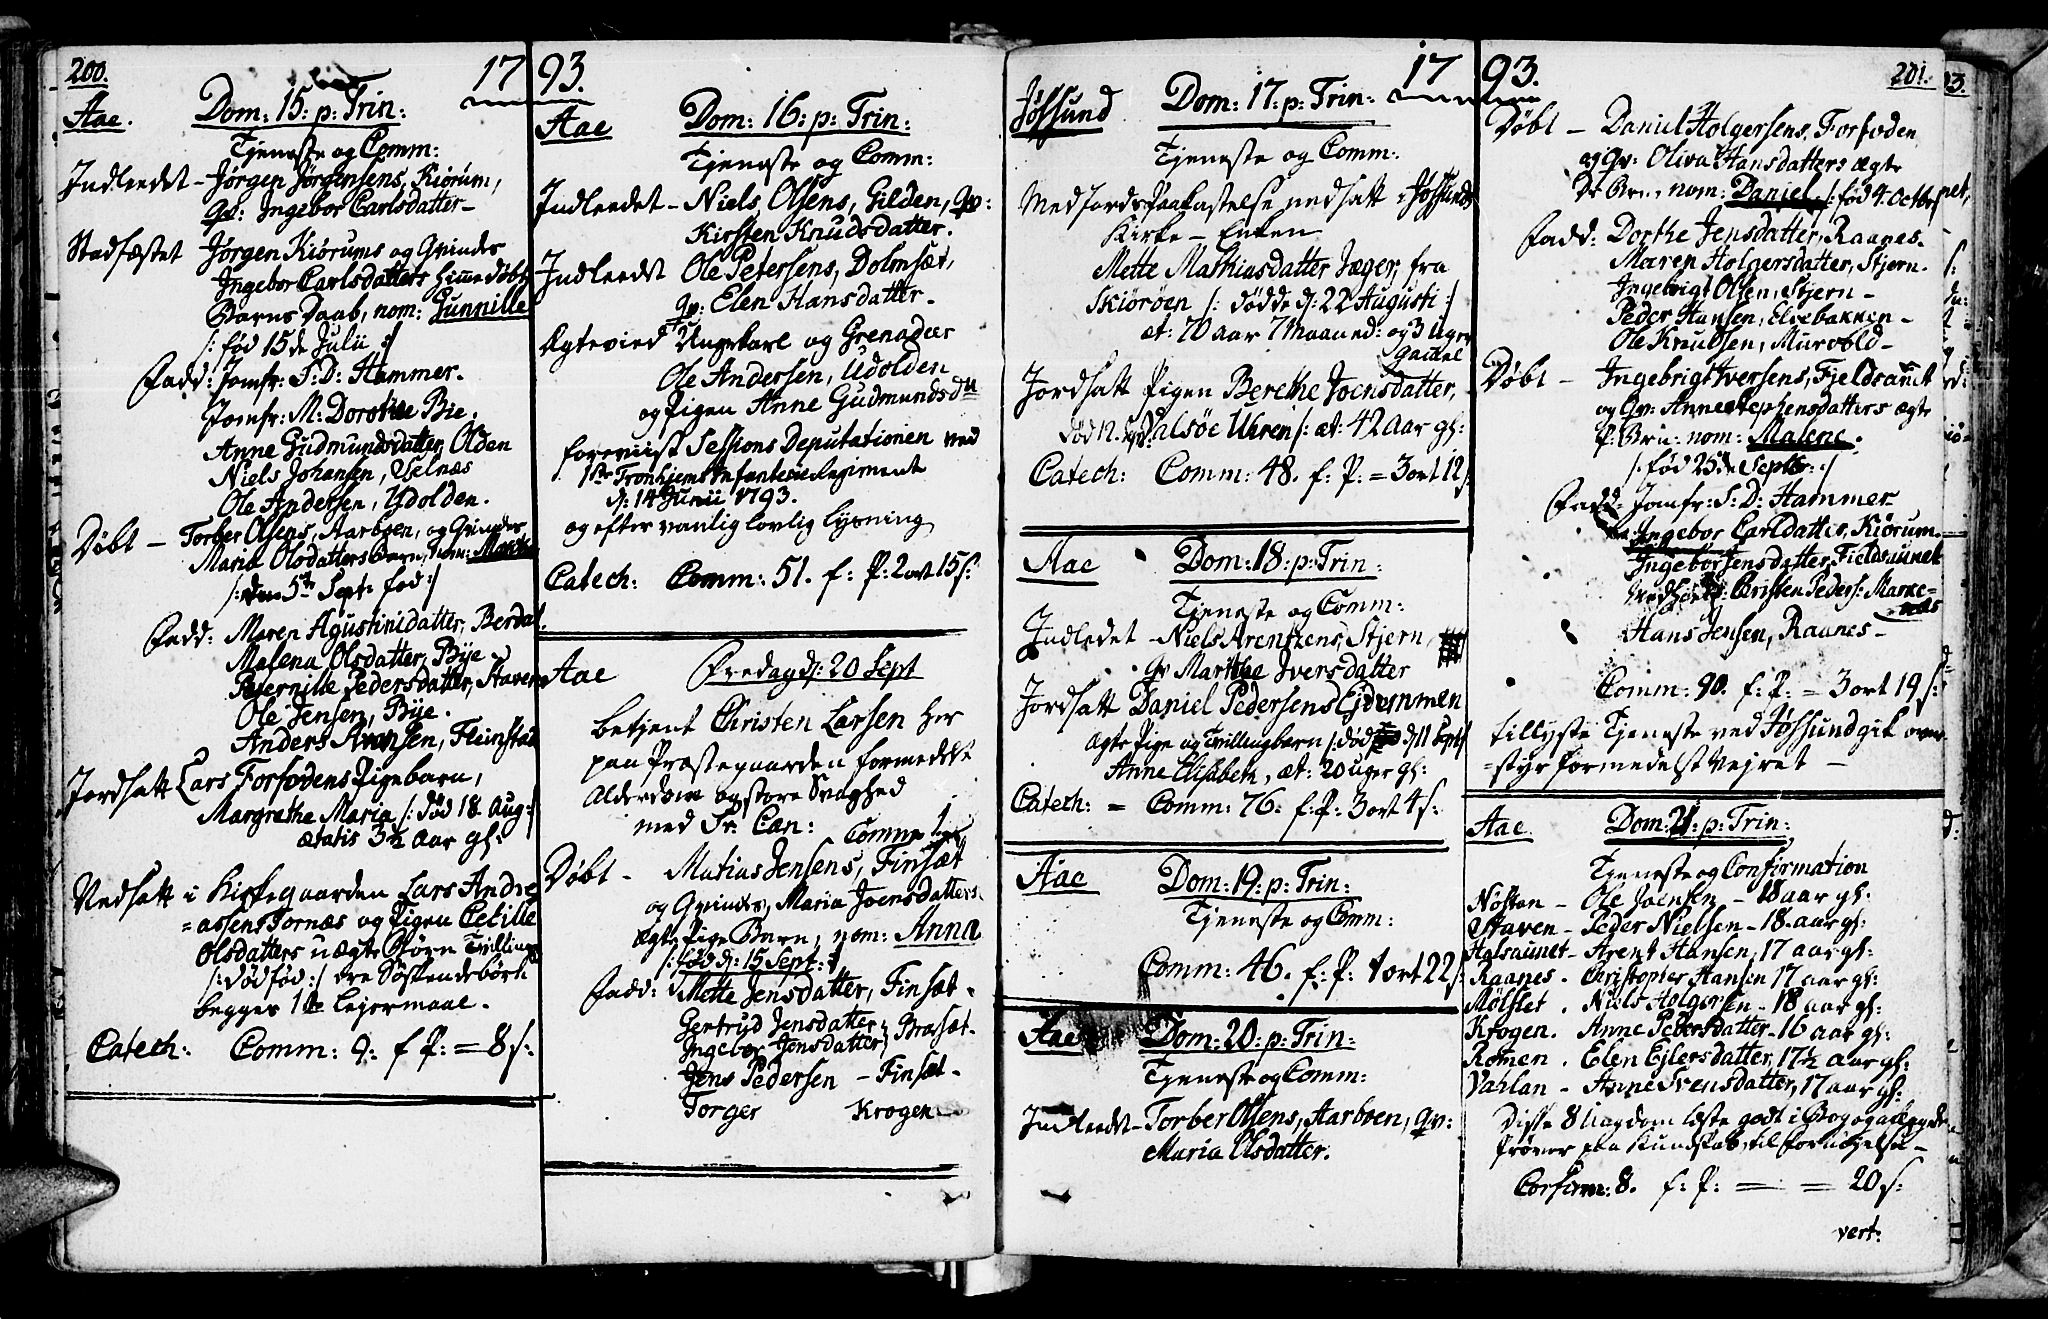 200.
1793.
Aae.
Dom: 15: p: Trin:
Tjeneste og Comm:
Indleedet - Jørgen Jørgensens, Kiørum,
Qv: Ingebor Carlsdatter -
Stadfæstet Jørgen Kiørums og Qvindes
Ingebor Carlsdatters hjemmedøbte
Barns Daab, nom: Gunnille
/: fød 15de Julii :/
Fadd: Jomfr: S: D: Hammer.
Jomfr: M: Dorothee Bie.
Anne Gudmundsdatter, Olden
Niels Johansen, Selnæs
Ole Andersen, Ydolden.
Døbt - Torber Olsens, Aarboen, og Qvindes
Maria Olsdatters Barn, nom:
/: den 5te Sept: fød :/
Fadd: Maren Agustinidatter, Berdal.
Malena Olsdatter, Bye
Pernille Pedersdatter, Staven
Ole Jensen, Bye.
Anders Arensen, Flenstad
Jordsatt Lars Forfodens Pigebarn,
Margrethe Maria /: død 18 Aug :/
ætatis 3½ aar gl:
Nedsatt i Kirkegaarden Lars Andre
=assens Tornæs og Pigen Cecille
Olsdatters uægte Børn Tvillinge
/: dødfød :/ ere Søskendebørn
begges 1te Lejermaal.
Catech: Comm: 9: f P: = 8 s:
Aae
Dom: 16: p: Trin:
Tjeneste og Comm:
Indleedet - Niels Olsens, Gilden, Qv:
Kirsten Knudsdatter.
Indleedt Ole Petersens, Dolmsæt,
Qv: Elen Hansdatter -
Ægtevied Ungekarl og Grenadeer
Ole Andersen, Udolden
og Pigen Anne Gudmundsdtr
foreviist Sessions Deputationen ved
1ste Tronhiems Infanterie Regiment
d: 14 Junii 1793.
og efter vanlig lovlig lysning
Catech: Comm: 51. f: P: 2 ort 15 s:
Aae
Fredag d: 20 Sept
betjent Christen Larsen her
paa Præstegaarden formedelst
Alderdom og store Svaghed
med Sr: Cæn: Comm 1
Døbt - Matias Jensens, Finsæt
og Qvindes, Maria Joensdatters
ægte Pige Barn, nom: Anna
/: fød d: 15 Sept: :/
Fadd: Mette Jensdatter, Finsæt.
Gertryd Jensdatter
Ingebor Jensdatter, Bræsæt.
Jens Pedersen - Finsæt -
Torger Krogen
1793.
201.
Jøssund
Dom: 17: p: Trin:
Tjeneste og Comm:
Med Jords Paakastelse nedsatt i Jøssunds
Kirke - Enken
Mette Mathiasdatter Jæger, fra
Skiørøen /: døde d: 22 Augusti :/
æt: 70 aar 7 Maaned: og 3 Uger
gammel
Jordsatt Pigen Berethe Joensdatter,
død 12. Valsøe Uhren /: æt: 42 Aar gl:
Catech: Comm: 48. f: P: = 3 ort 12 s:
Aae
Dom: 18: p: Trin:
Tjeneste og Comm:
Indledet - Niels Arentzens, Stjern
Qv Marithe Iversdatter
Jordsatt Daniel Pedersens Ejdemmen
ægte Pige og Tvillingbarn /: død d 11 Sept
Anne Elisabeth, æt: 20 uger gl:
Catech: = Comm: 76. f: P: 3 ort 4 s:
Aae
Dom: 19: p: Trin:
Tjeneste og Comm:
Comm: 46. f: P: 1 ort 22 s:
Aae
Dom: 20: p: Trin:
Tjeneste og Comm:
Indleedt - Torber Olsens, Aarboen, Qv:
Maria Olsdatter.
Døbt - Daniel Holgersens, Forfoden
og Qv: Oliva Hansdatters ægte
Dr: Brn: nom: Daniel /: fød 4. Octbr
Fadd: Dorthe Jensdatter, Raanes.
Maren Holgersdatter, Stjern.
Ingebrigt Olsen, Stjern -
Peder Hansen, Elvebakken -
Ole Knudsen, Murvold -
Døbt - Ingebrigt Iversens, Fjeldsaunet
og Qv: Anne Stephensdatters ægte
P: Brn: nom: Malene.
/: fød 25de Septbr: :/
Fadd: Jomfr: S: D: Hammer
Ingebor Carldatter, Kiørum.
Ingebor Jensdatter, Fieldsaunet
Christen Peders: Marke=
=næs
Hans Jensen, Raanes -
Comm: 90. f: P: = 3 ort 19 s:
tillyste Tjeneste ved Jøssund gik over
=styr formedelst Vejret -
Aae.
Dom: 21: p: Trin:
Tjeneste og Confirmation
Nøston - Ole Joensen - 18 aar gl:
Staven - Peder Nielsen - 18. aar gl:
Halsaunet - Arent Hansen, 17 aar gl:
Raanes. Christopher Hansen 17 aar gl:
Mølslet. Niels Holgersen - 18 aar gl:
Krogen. Anne Pedersdatter - 16 aar gl:
Romen. Elen Ejlersdatter, 17½ aar gl:
Vahlan - Anne Svensdatter, 17 aar gl:
Disse 8 Ungdom læste godt i Bog og aflagde
Prøver paa Kundskab til Fornøjelse -
Confirm: 8. f: P: = = 20 s:
vert: